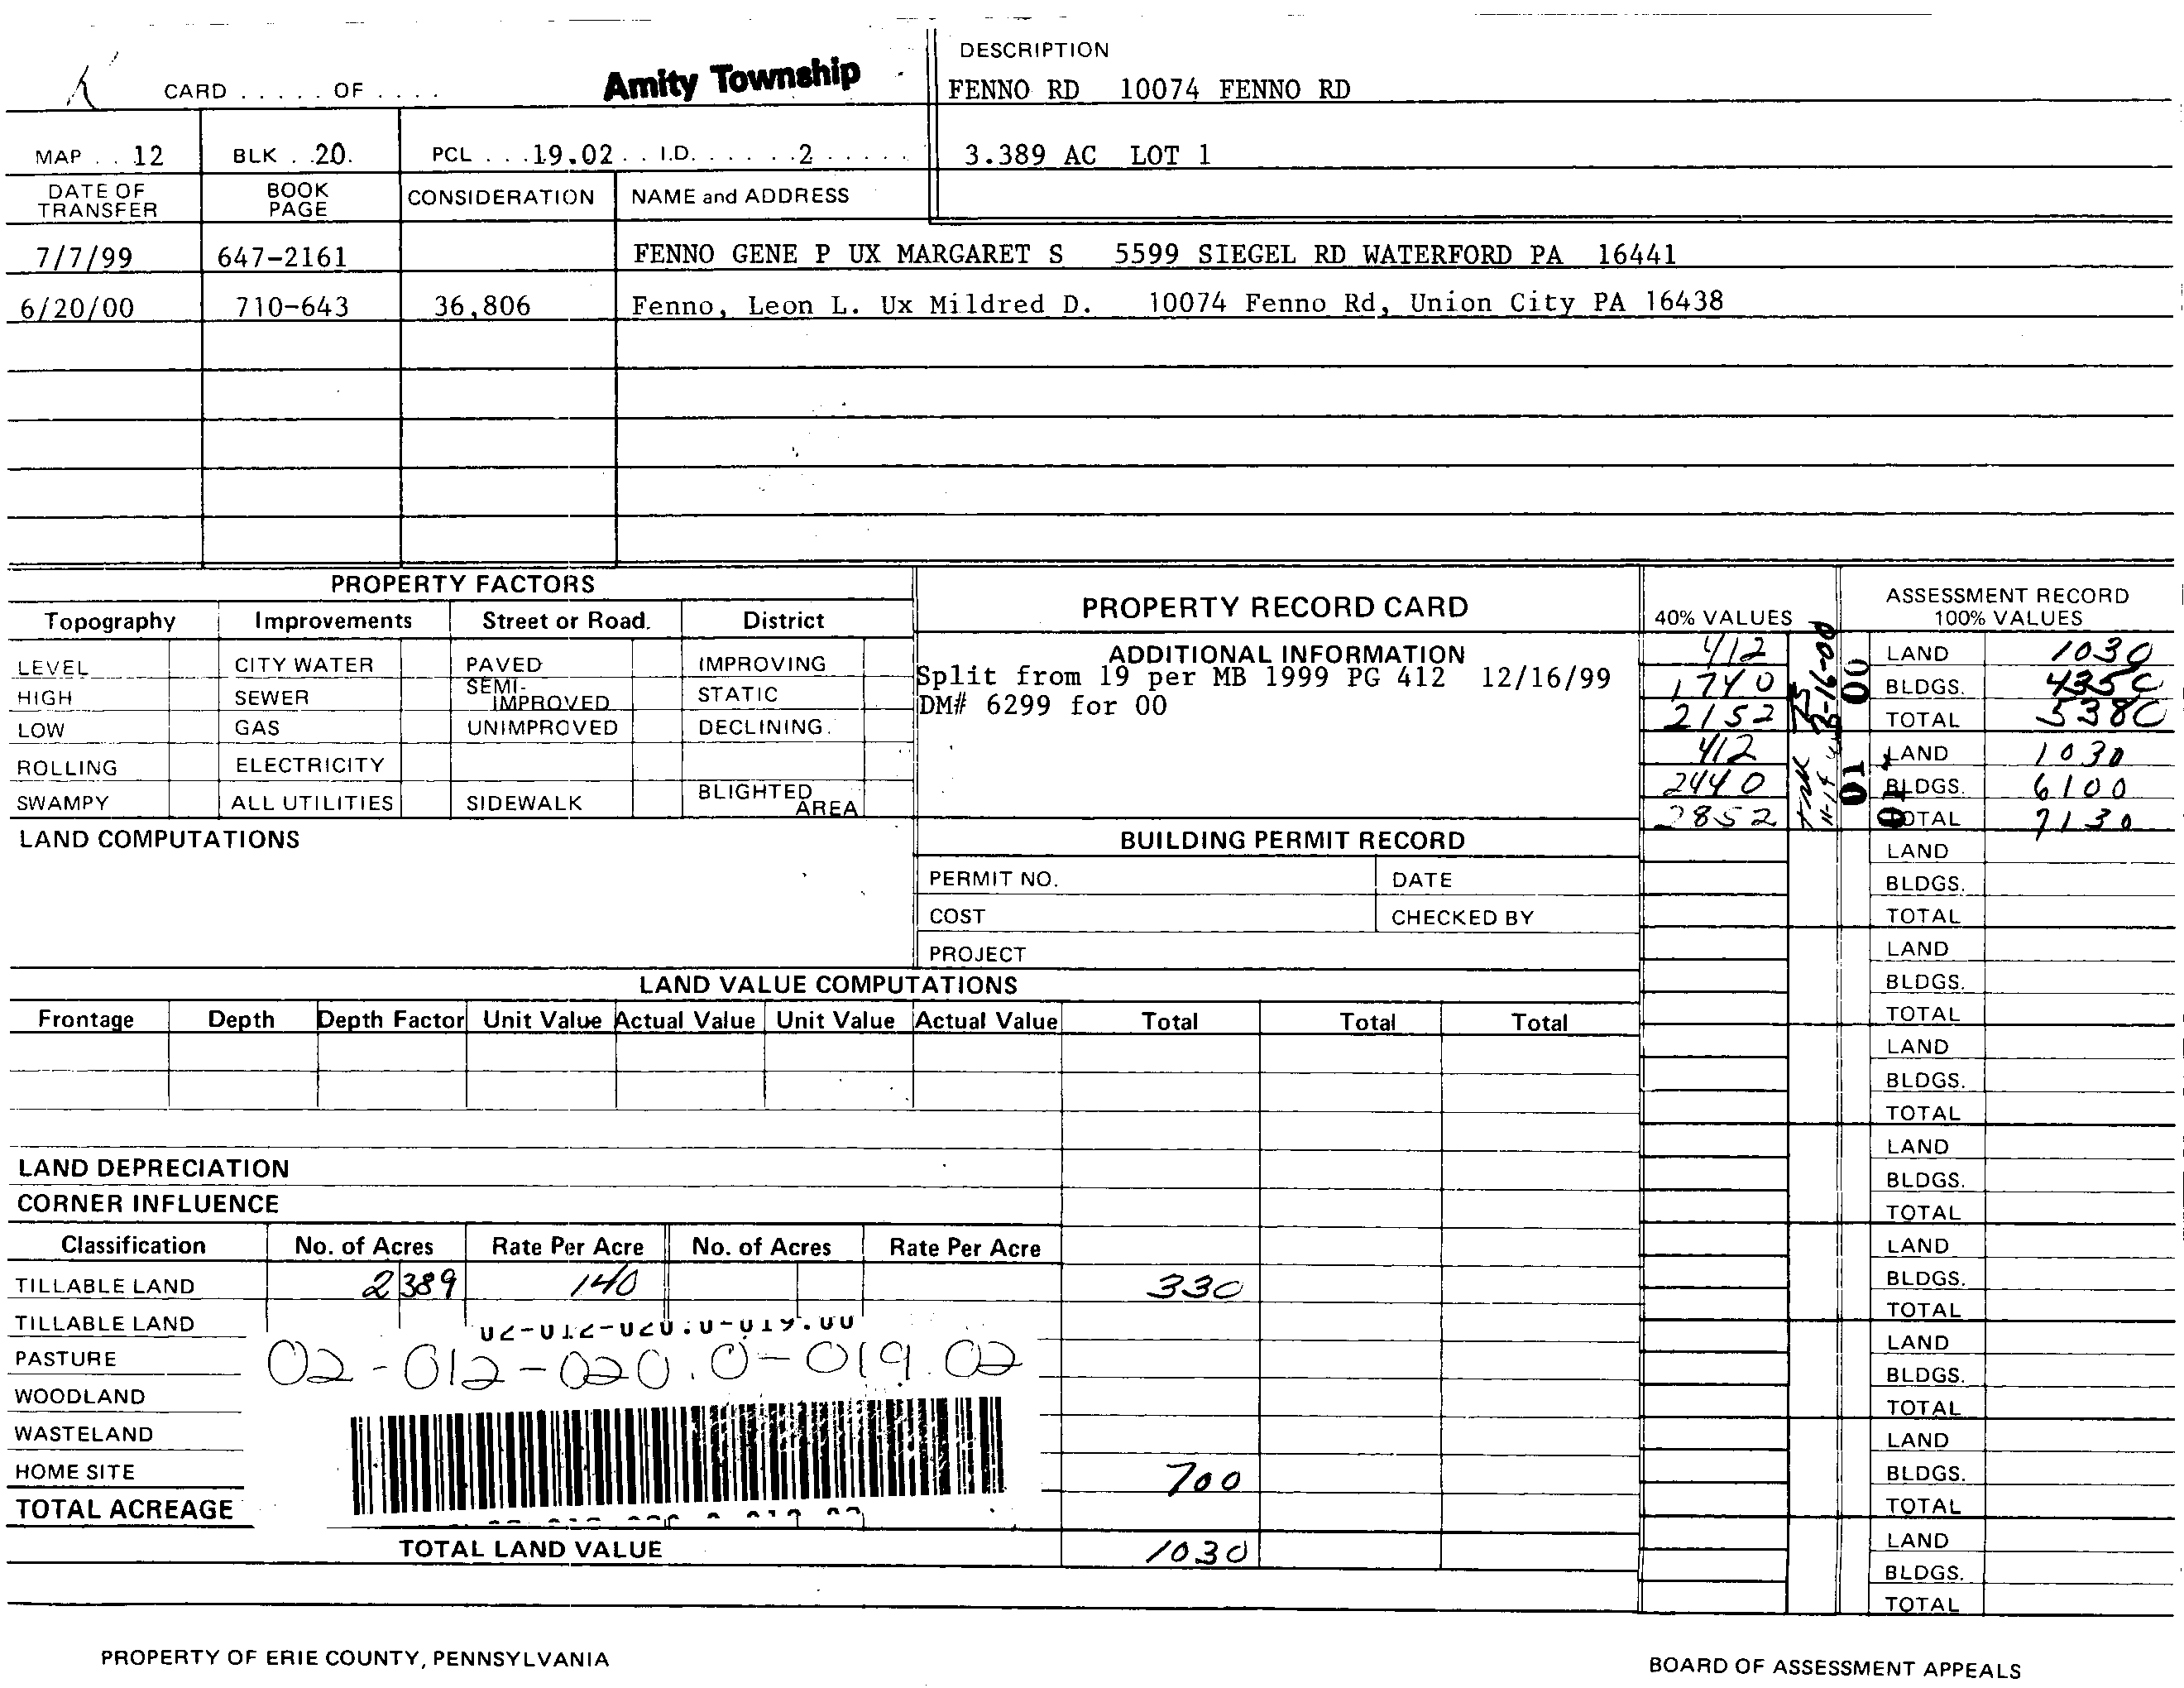 CARD . . . . . OF . . . .
Amity Township
DESCRIPTION
FENNO RD 10074 FENNO RD
MAP . . 12 BLK . . 20. PCL . . . 19.02 . . I.D. . . . . . . 2 . . . . .
3.389 AC LOT 1
DATE OF TRANSFER BOOK PAGE CONSIDERATION NAME and ADDRESS
7/7/99 647-2161 FENNO GENE P UX MARGARET S 5599 SIEGEL RD WATERFORD PA 16441
6/20/00 710-643 36,806 Fenno, Leon L. Ux Mildred D. 10074 Fenno Rd, Union City PA 16438
PROPERTY FACTORS
Topography Improvements Street or Road. District
LEVEL CITY WATER PAVED IMPROVING
HIGH SEWER SEMI-IMPROVED STATIC
LOW GAS UNIMPROVED DECLINING
ROLLING ELECTRICITY
SWAMPY ALL UTILITIES SIDEWALK BLIGHTED AREA
PROPERTY RECORD CARD
ADDITIONAL INFORMATION
Split from 19 per MB 1999 PG 412 12/16/99
DM# 6299 for 00
40% VALUES
ASSESSMENT RECORD
100% VALUES
412 LAND 1030
1740 BLDGS. 4350
2152 TOTAL 5380
00
3-16-00
412 LAND 1030
2440 BLDGS. 6100
2852 TOTAL 7130
01
01
LAND
BLDGS.
TOTAL
LAND
BLDGS.
TOTAL
LAND
BLDGS.
TOTAL
LAND
BLDGS.
TOTAL
LAND
BLDGS.
TOTAL
LAND
BLDGS.
TOTAL
LAND
BLDGS.
TOTAL
LAND
BLDGS.
TOTAL
LAND COMPUTATIONS
BUILDING PERMIT RECORD
PERMIT NO. DATE
COST CHECKED BY
PROJECT
LAND VALUE COMPUTATIONS
Frontage Depth Depth Factor Unit Value Actual Value Unit Value Actual Value Total Total Total
LAND DEPRECIATION
CORNER INFLUENCE
Classification No. of Acres Rate Per Acre No. of Acres Rate Per Acre
TILLABLE LAND 2 389 140 330
TILLABLE LAND
02-012-020.0-019.00
PASTURE
02-012-020.0-019.02
WOODLAND
WASTELAND
HOME SITE 700
TOTAL ACREAGE
TOTAL LAND VALUE 1030
PROPERTY OF ERIE COUNTY, PENNSYLVANIA
BOARD OF ASSESSMENT APPEALS